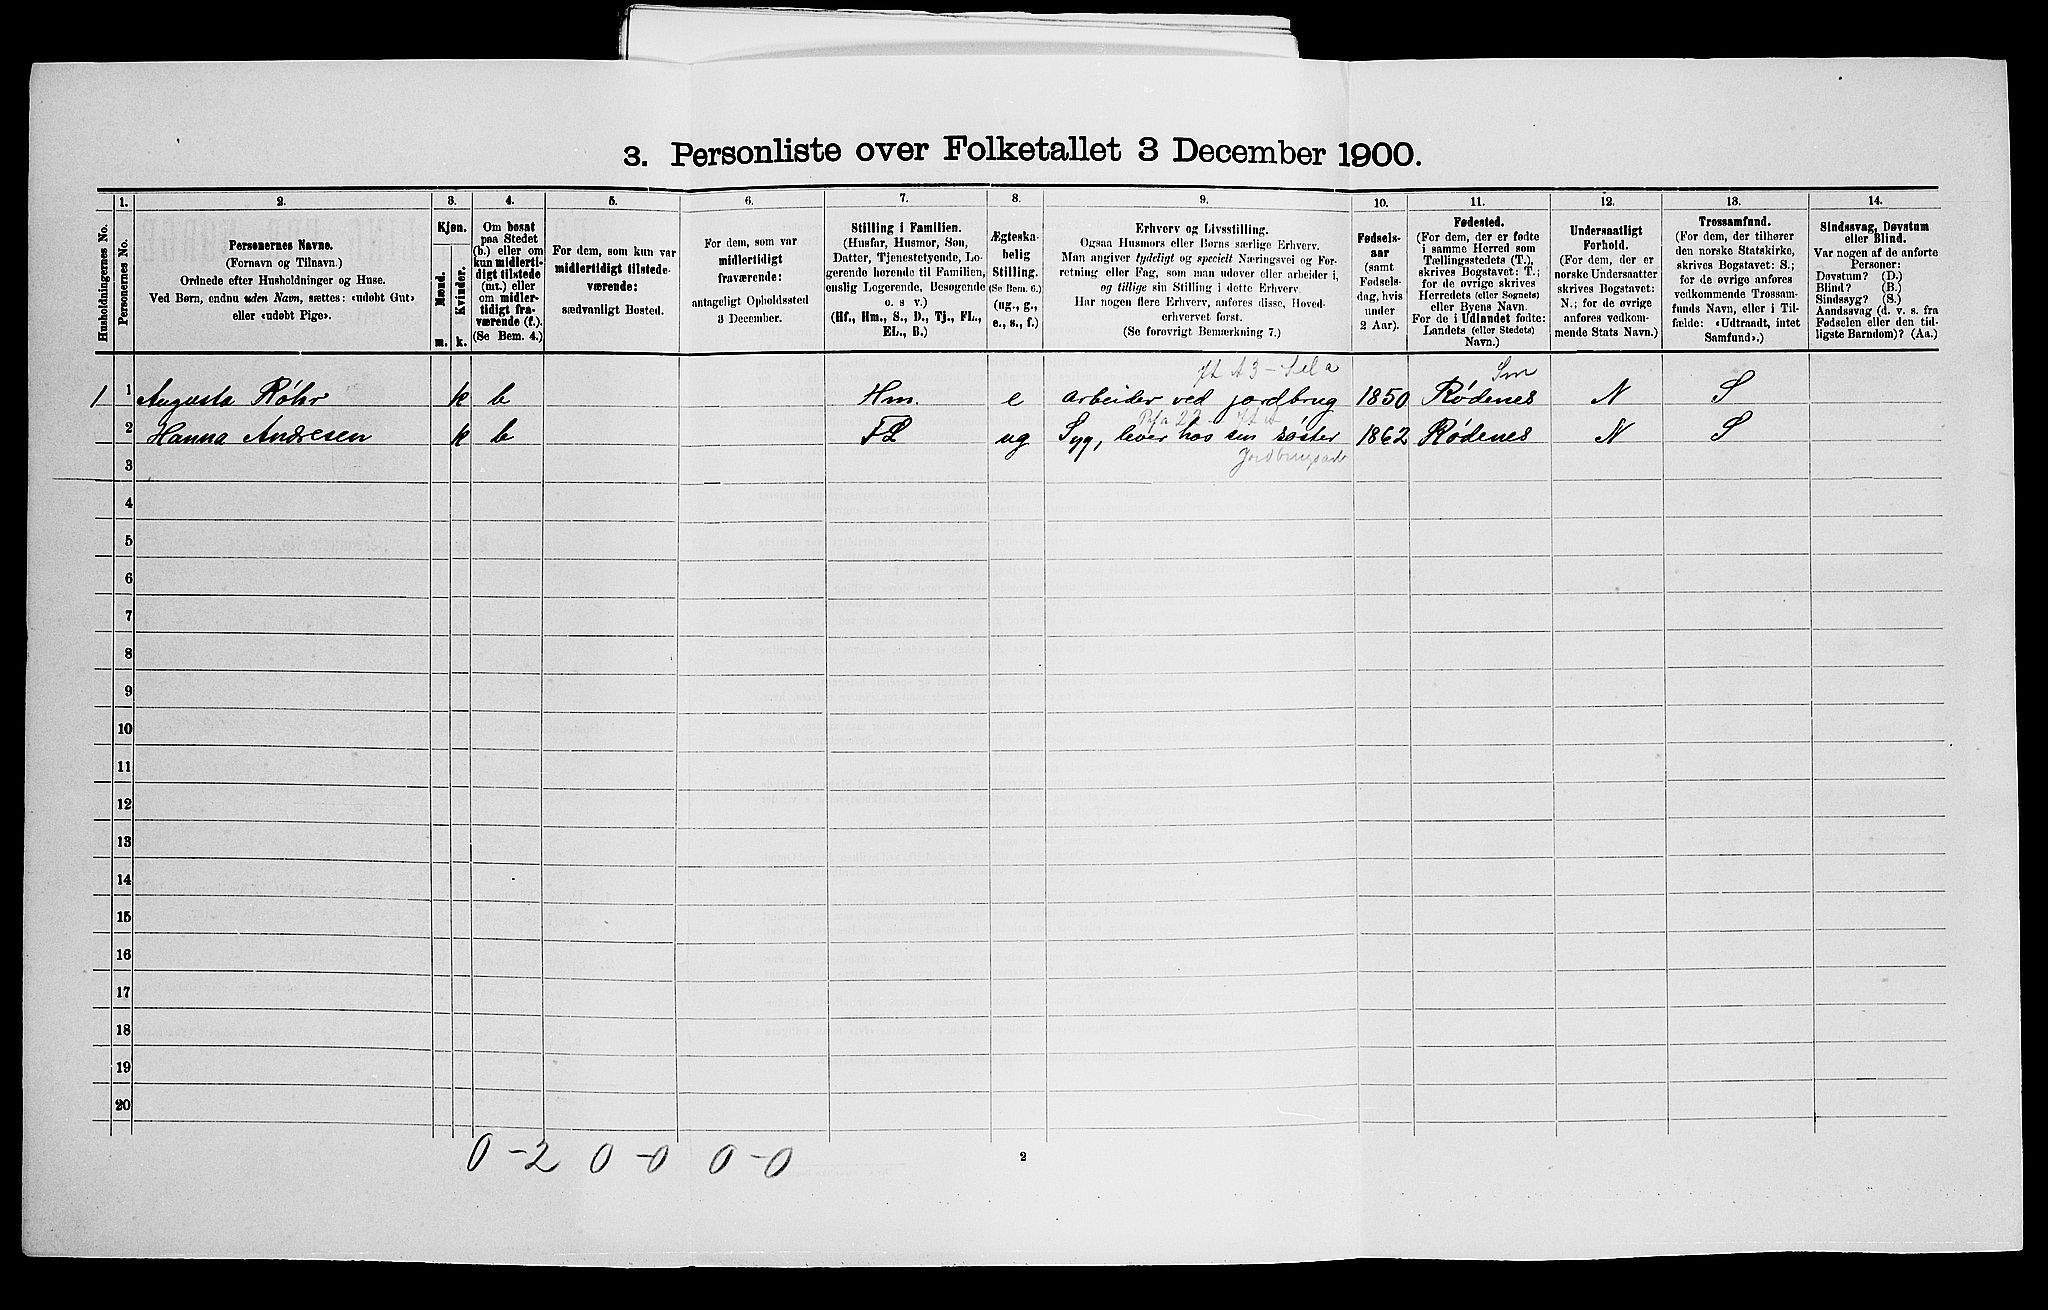 3. Personliste over Folketallet 3 December 1900.
Husholdningernes No.
1.
Personernes No.
2.
Personernes Navne.
(Fornavn og Tilnavn.)
Ordnede efter Husholdninger og Huse.
Ved Børn, endnu uden Navn, sættes: «udøbt Gut»
eller «udøbt Pige».
3.
Kjøn.
Mænd.
Kvinder.
m. k.
4.
Om bosat
paa Stedet
(b.) eller om
kun midlerti-
digt tilstede
(mt.) eller
om midler-
tidigt fra-
værende (f.).
(Se Bem. 4.)
5.
For dem, som kun var
midlertidigt tilstede-
værende:
sædvanligt Bosted.
6.
For dem, som var
midlertidigt
fraværende:
antageligt Opholdssted
3 December.
7.
Stilling i Familien.
(Husfar, Husmor, Søn,
Datter, Tjenestetyende, Lo-
gerende hørende til Familien,
enslig Logerende, Besøgende
o. s v.)
(Hf., Hm., S., D., Tj., FL.,
EL., B.)
8.
Ægteska-
belig
Stilling.
(Se Bem. 6.)
(ug., g.,
e., s., f.)
9.
Erhverv og Livsstilling.
Ogsaa Husmors eller Børns særlige Erhverv.
Man angiver tydeligt og specielt Næringsvei og For-
retning eller Fag, som man udover eller arbeider i,
og tillige sin Stilling i dette Erhverv.
Har nogen flere Erhverv, anføres disse, Hoved-
erhvervet først.
(Se forøvrigt Bemærkning 7.)
10.
Fødsels-
aar
(samt
Fødsels-
dag, hvis
under
2 Aar).
11.
Fødested.
(For dem, der er fødte
i samme Herred som
Tællingsstedets (T.),
skrives Bogstavet: T.;
for de øvrige skrives
Herredets (eller Sognets)
eller Byens Navn.
For de i Udlandet fødte:
Landets (eller Stedets)
Navn.)
12.
Undersaatligt
Forhold.
(For dem, der er
norske Undersaatter
skrives Bogstavet:
N.; for de øvrige
anføres vedkom-
mende Stats Navn.)
13.
Trossamfund.
(For dem, der tilhører
den norske Statskirke,
skrives Bogstavet: S.;
for de øvrige anføres
vedkommende Trossam-
funds Navn, eller i Til-
fælde: «Udtraadt, intet
Samfund».)
14.
Sindssvag, Døvstum
eller Blind.
Var nogen af de anførte
Personer:
Døvstum? (D.)
Blind? (B.)
Sindssyg? (S.)
Aandssvag (d. v. s. fra
Fødselen eller den tid-
ligste Barndom)? (Aa.)
1 1 Augusta Röhr k b Hm. e arbeider ved jordbrug 1850 Rødenes N S
2 Hanna Andresen k b FL ug Syg, lever hos sin søster 1862 Rødenes N S
3
4
5
6
7
8
9
10
11
12
13
14
15
16
17
18
19
20
0-2 0-0 0-0
2